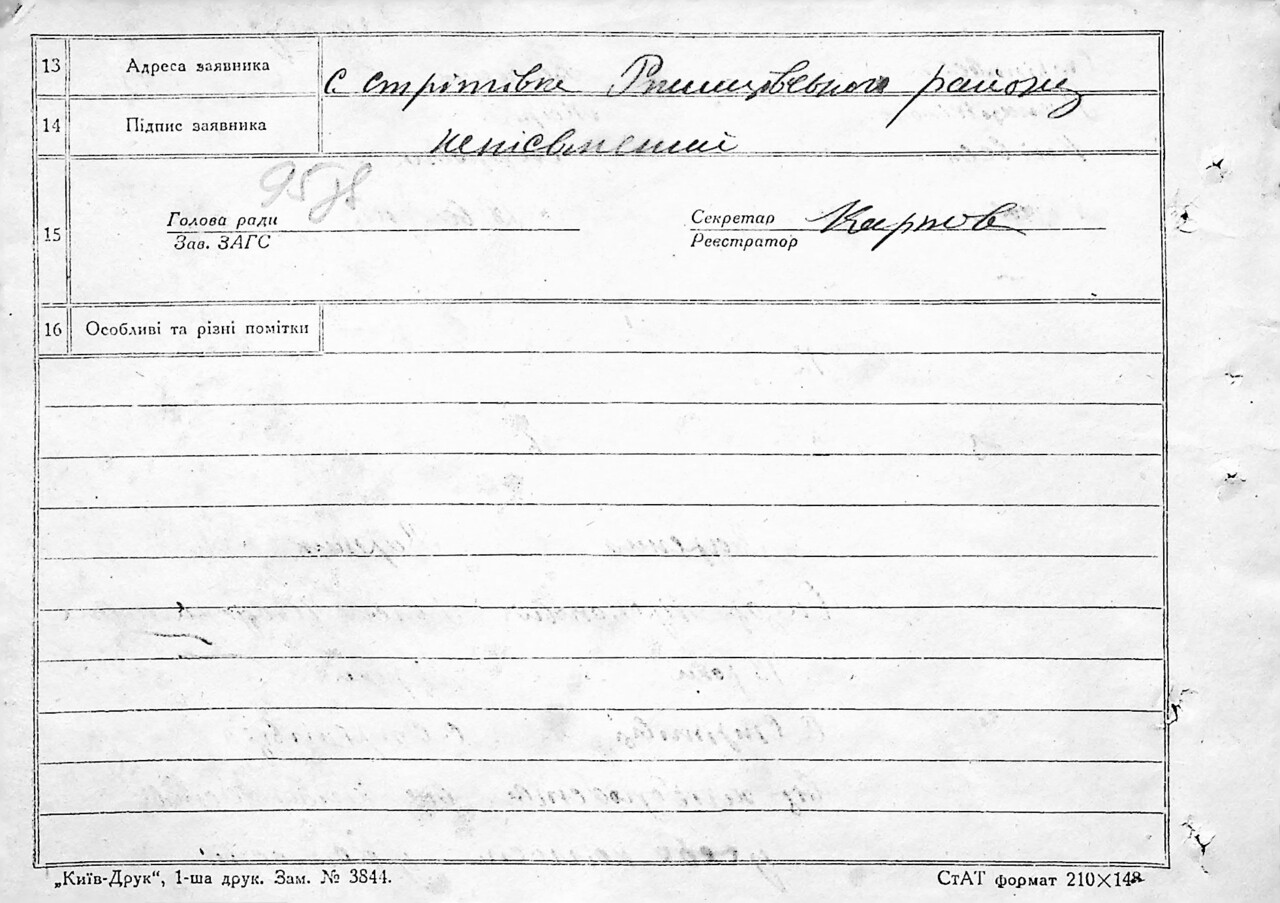 13 Адреса заявника с Стрітівка Ржищівського району
14 Підпис заявника неписьменний
95
15 Голова ради Секретар Карпов
Зав. ЗАГС Реєстратор
16 Особливі та різні помітки
„Київ-Друк“, 1-ша друк. Зам. № 3844. СтАТ формат 210×148